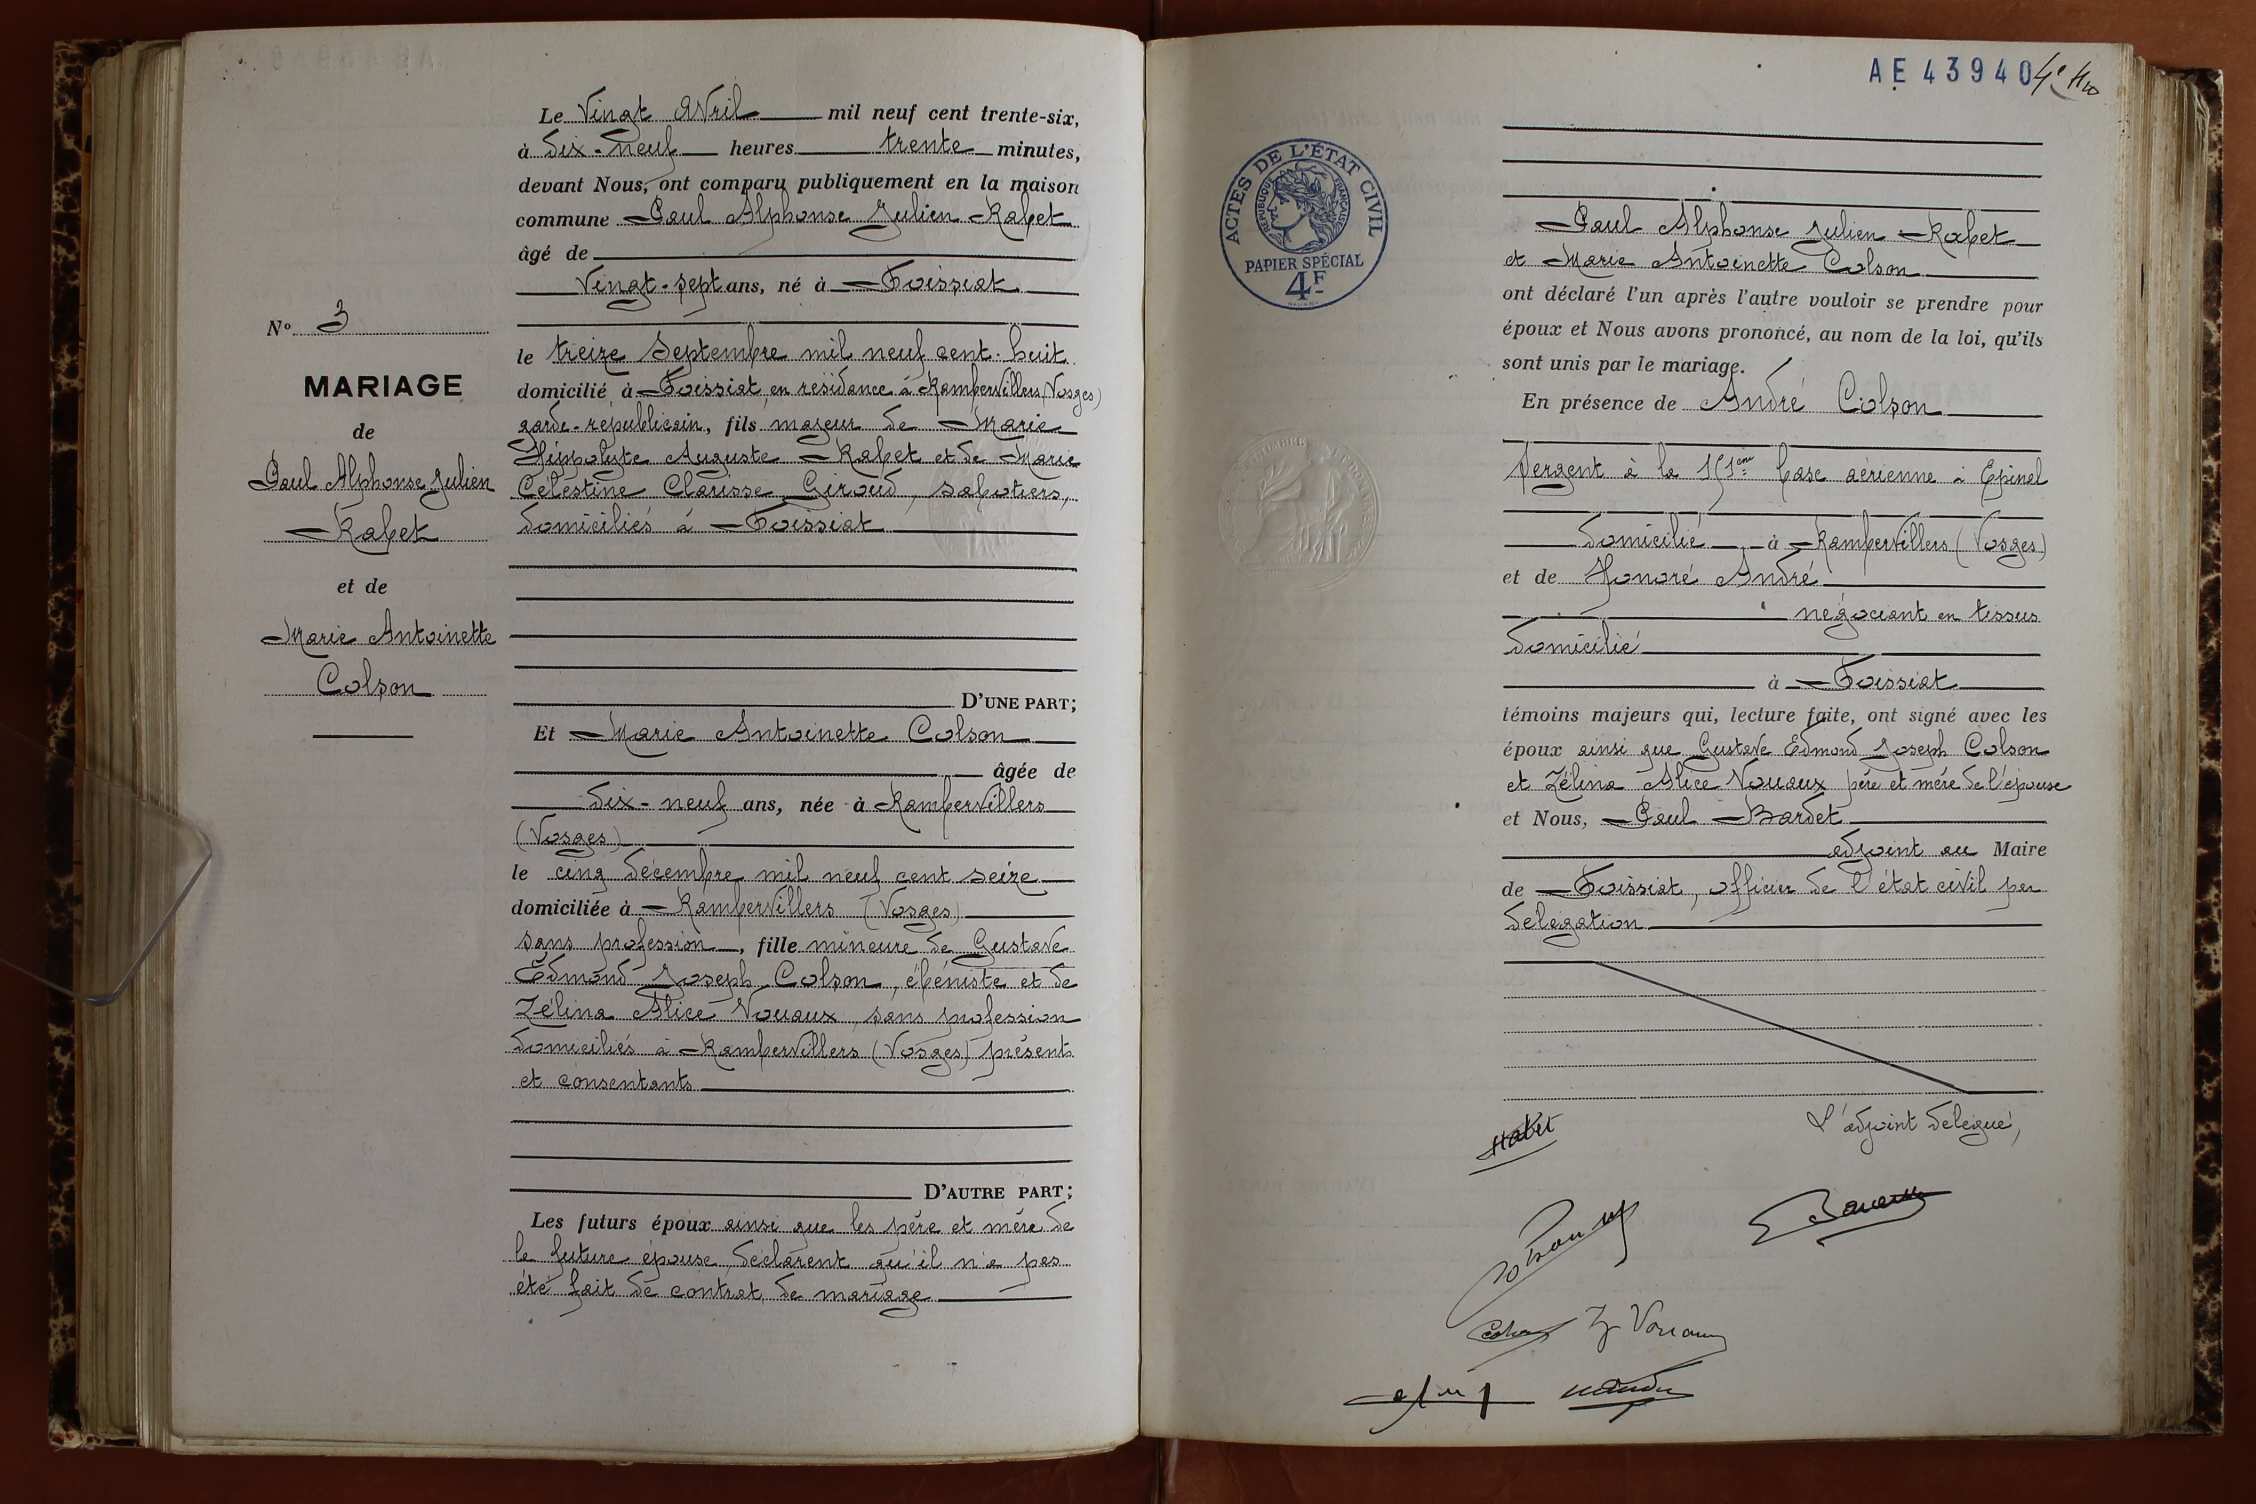 N° 3
MARIAGE
de
Paul Alphonse Julien
Rabet
et de
Marie Antoinette
Colson
Le vingt avril mil neuf cent trente-six,
à dix-neuf heures trente minutes,
devant Nous, ont comparu publiquement en la maison
commune Paul Alphonse Julien Rabet
âgé de
vingt-sept ans, né à Foissiat
le treize septembre mil neuf cent huit
domicilié à Foissiat, en résidence à Rambervillers (Vosges)
garde-républicain, fils majeur de Marie
Hippolyte Auguste Rabet et de Marie
Célestine Clarisse Giroud, sabotiers,
domiciliés à Foissiat
D'UNE PART;
Et Marie Antoinette Colson
âgée de
dix-neuf ans, née à Rambervillers
(Vosges)
le cinq décembre mil neuf cent seize
domiciliée à Rambervillers (Vosges)
sans profession, fille mineure de Gustave
Edmond Joseph Colson, ébéniste et de
Zélina Alice Vouaux, sans profession
domiciliés à Rambervillers (Vosges) présents
et consentants
D'AUTRE PART;
Les futurs époux ainsi que les père et mère de
la future épouse, déclarent qu'il n'a pas
été fait de contrat de mariage
AE 43940
ACTES DE L'ÉTAT CIVIL
RÉPUBLIQUE FRANÇAISE
PAPIER SPÉCIAL
4F
Paul Alphonse Julien Rabet
et Marie Antoinette Colson
ont déclaré l'un après l'autre vouloir se prendre pour
époux et Nous avons prononcé, au nom de la loi, qu'ils
sont unis par le mariage.
En présence de André Colson
sergent à la 151ème base aérienne à Epinal
domicilié à Rambervillers (Vosges)
et de Honoré André
négociant en tissus
domicilié
à Foissiat
témoins majeurs qui, lecture faite, ont signé avec les
époux ainsi que Gustave Edmond Joseph Colson
et Zélina Alice Vouaux père et mère de l'épouse
et Nous, Paul Bardet
adjoint au Maire
de Foissiat, officier de l'état civil par
délégation
L'adjoint délégué,
Z Vouaux